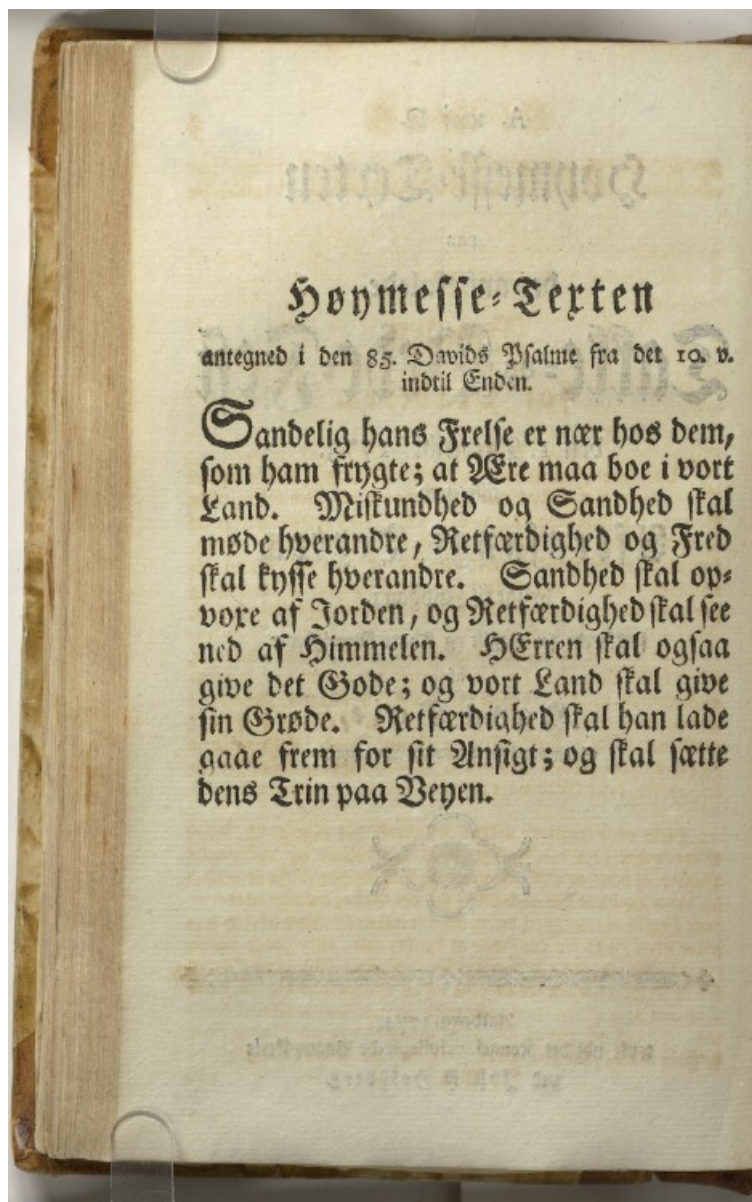 Høymesse-Texten
antegned i den 85. Davids Psalme fra det 10. v.
indtil Enden.
Sandelig hans Frelse er nær hos dem,
som ham frygte; at Ære maa boe i vort
Land. Miskundhed og Sandhed skal
møde hverandre, Retfærdighed og Fred
skal kysse hverandre. Sandhed skal op-
voxe af Jorden, og Retfærdighed skal see
ned af Himmelen. HErren skal ogsaa
give det Gode; og vort Land skal give
sin Grøde. Retfærdighed skal han lade
gaae frem for sit Ansigt; og skal sætte
dens Trin paa Veyen.